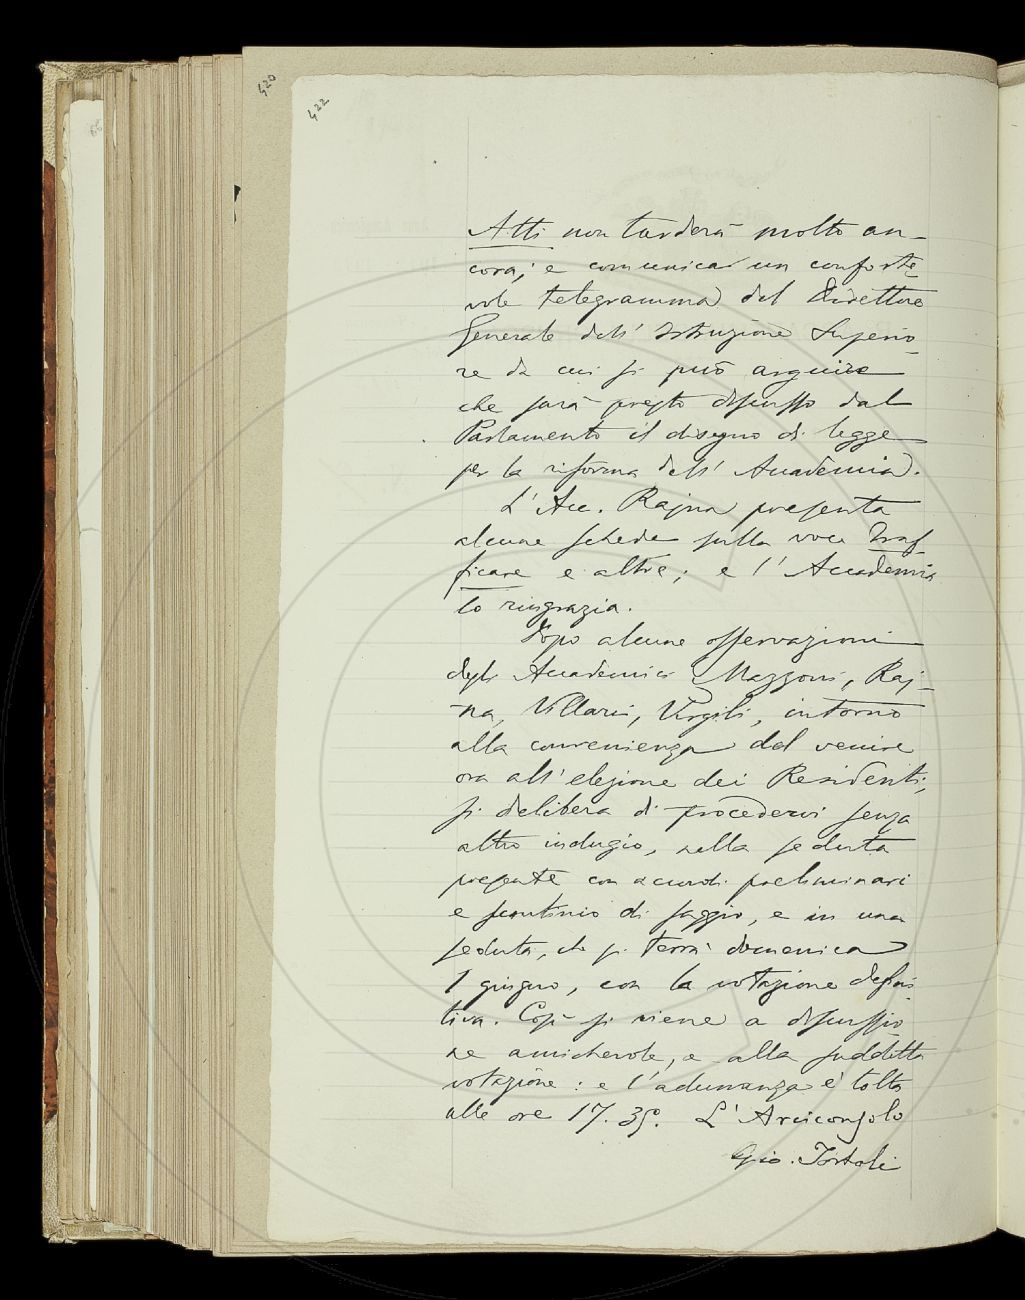 420
422
Atti non tarderà molto an-
cora; e comunica un conforte-
vole telegramma del Direttore
Generale dell' Istruzione Superio-
re da cui si può arguire
che sarà presto discusso dal
Parlamento il disegno di legge
per la riforma dell' Accademia.
L' Acc. Rajna presenta
alcune schede sulla voce Traf-
ficare e altre; e l' Accademia
lo ringrazia.
Dopo alcune osservazioni
degli Accademici Mazzoni, Raj-
na, Villari, Virgili, intorno
alla convenienza del venire
ora all' elezione dei Residenti,
si delibera di procedervi senza
altro indugio, nella seduta
presente con accordi preliminari
e scrutinio di saggio, e in una
seduta, che si terrà domenica
1 giugno, con la votazione defini-
tiva. Così si viene a discussio-
ne amichevole, e alla suddetta
votazione: e l'adunanza è tolta
alle ore 17.35. L' Arciconsolo
Gio. Tortoli